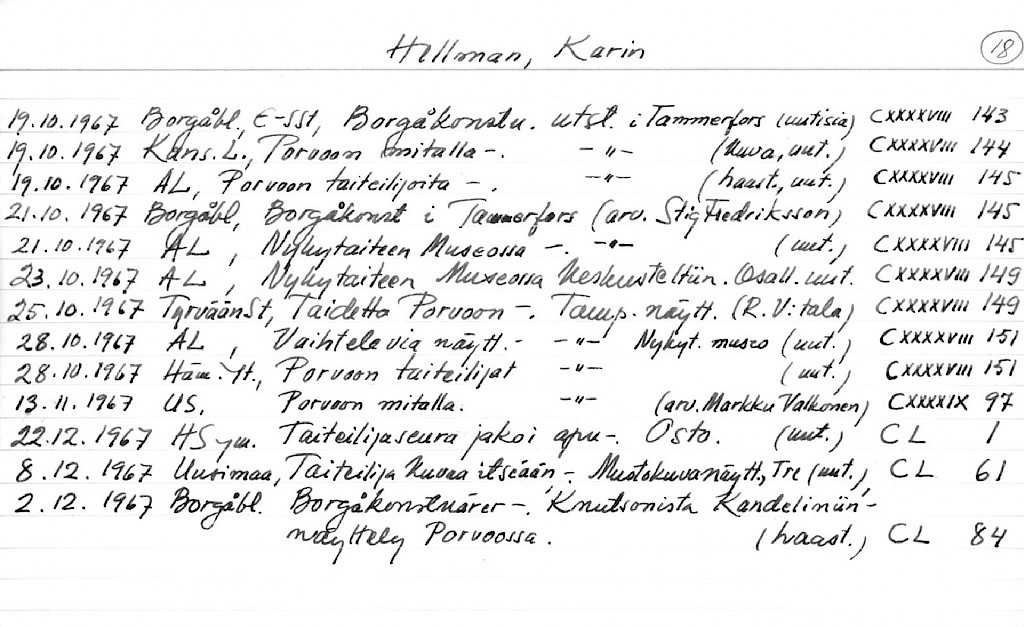 Hellman, Karin 18
19.10.1967 Borgåbl., E-SSt, Borgåkonstn. utst. i Tammerfors (uutisia) CXXXXVIII 143
19.10.1967 Kans.L., Porvoon mitalla -. -"- (kuva, uut.) CXXXXVIII 144
19.10.1967 AL, Porvoon taiteilijoita -. -"- (haast., uut.) CXXXXVIII 145
21.10.1967 Borgåbl, Borgåkonst i Tammerfors (arv. Stig Fredriksson) CXXXXVIII 145
21.10.1967 AL, Nykytaiteen Museossa -. -"- (uut.) CXXXXVIII 145
23.10.1967 AL, Nykytaiteen Museossa keskusteltiin. Osall. uut. CXXXXVIII 149
25.10.1967 TyrväänSt, Taidetta Porvoon -. Tamp. näytt. (R. Viitala) CXXXXVIII 149
28.10.1967 AL, Vaihtelevia näytt.- -"- Nykyt. museo (uut.) CXXXXVIII 151
28.10.1967 Häm. Yt., Porvoon taiteilijat -"- (uut.) CXXXXVIII 151
13.11.1967 US, Porvoon mitalla. -"- (arv. Markku Valkonen) CXXXXIX 97
22.12.1967 HSym. Taiteilijaseura jakoi apu-. Osto. (uut.) CL 1
8.12.1967 Uusimaa, Taiteilija kuvaa itseään, - Muotokuvanäytt., Tre (uut.) CL 61
2.12.1967 Borgåbl. Borgåkonstnärer -. Knutsonista Kandeliniin-
näyttely Porvoossa. (haast.) CL 84